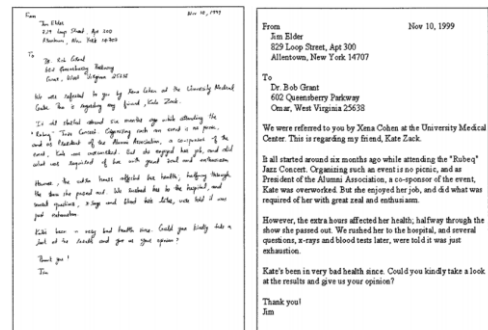 From
Nov 10, 1999
Jim Elder
829 Loop Street, Apt 300
Allentown, New York 14707
To
Dr. Bob Grant
602 Queensberry Parkway
Omar, West Virginia 25638
We were referred to you by Xena Cohen at the University Medical
Center. This is regarding my friend, Kate Zack.
It all started around six months ago while attending the
"Rubeq" Jazz Concert. Organizing such an event is no picnic,
and as President of the Alumni Association, a co-sponsor of the
event, Kate was overworked. But she enjoyed her job, and did
what was required of her with great zeal and enthusiasm.
However, the extra hours affected her health; halfway through
the show she passed out. We rushed her to the hospital, and
several questions, x-rays and blood tests later, were told it was
just exhaustion.
Kate's been in very bad health since. Could you kindly take a
look at the results and give us your opinion?
Thank you!
Jim
From Nov 10, 1999
Jim Elder
829 Loop Street, Apt 300
Allentown, New York 14707
To
Dr. Bob Grant
602 Queensberry Parkway
Omar, West Virginia 25638
We were referred to you by Xena Cohen at the University Medical
Center. This is regarding my friend, Kate Zack.
It all started around six months ago while attending the "Rubeq"
Jazz Concert. Organizing such an event is no picnic, and as
President of the Alumni Association, a co-sponsor of the event,
Kate was overworked. But she enjoyed her job, and did what was
required of her with great zeal and enthusiasm.
However, the extra hours affected her health; halfway through the
show she passed out. We rushed her to the hospital, and several
questions, x-rays and blood tests later, were told it was just
exhaustion.
Kate's been in very bad health since. Could you kindly take a look
at the results and give us your opinion?
Thank you!
Jim